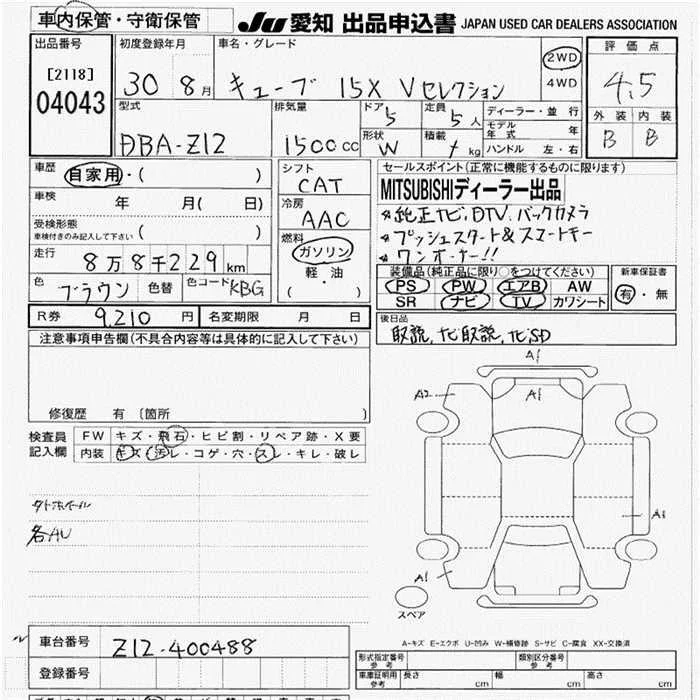 車内保管・守衛保管
JU 愛知 出品申込書 JAPAN USED CAR DEALERS ASSOCIATION
出品番号
[2118]
04043
初度登録年月
30 8月
車名・グレード
キューブ 15X Vセレクション
2WD
4WD
評価点
4.5
外装 内装
B B
型式
DBA-Z12
排気量
1500 cc
ドア 5
定員 5人
形状 W
積載 kg
ディーラー・並行
モデル年式 年
ハンドル 左・右
車歴 自家用・( )
車検 年 月( 日)
受検形態
車検付きのみ記入して下さい ( )
走行 8万8千229km
色 ブラウン 色替 色コード KBG
シフト
CAT
冷房
AAC
燃料
ガソリン
軽・油
( )
セールスポイント(正常に機能するものに限ります)
MITSUBISHIディーラー出品
純正ナビ,DTV.バックカメラ
プッシュスタート&スマートキー
ワンオーナー!!
装備品(純正品に限り○をつけてください)
PS PW エアB AW
SR ナビ TV カワシート
新車保証書
有・無
R券 9,210 円 名変期限 月 日
後日品
取説,ナビ取説,ナビSD
注意事項申告欄(不具合内容等は具体的に記入して下さい)
修復歴 有〔箇所 〕
検査員記入欄
FW キズ・飛石・ヒビ割・リペア跡・X要
内装 キズ・汚レ・コゲ・穴・スレ・キレ・破レ
タトホホール
各AU
A1
A2
A1
A1
A1
スペア
A-キズ E-エクボ U-凹み W-補修跡 S-サビ C-腐食 XX-交換済
車台番号 Z12-400488
登録番号
形式指定番号 参考
類別区分番号 参考
車庫証明用 参考 長さ cm 幅 cm 高さ cm